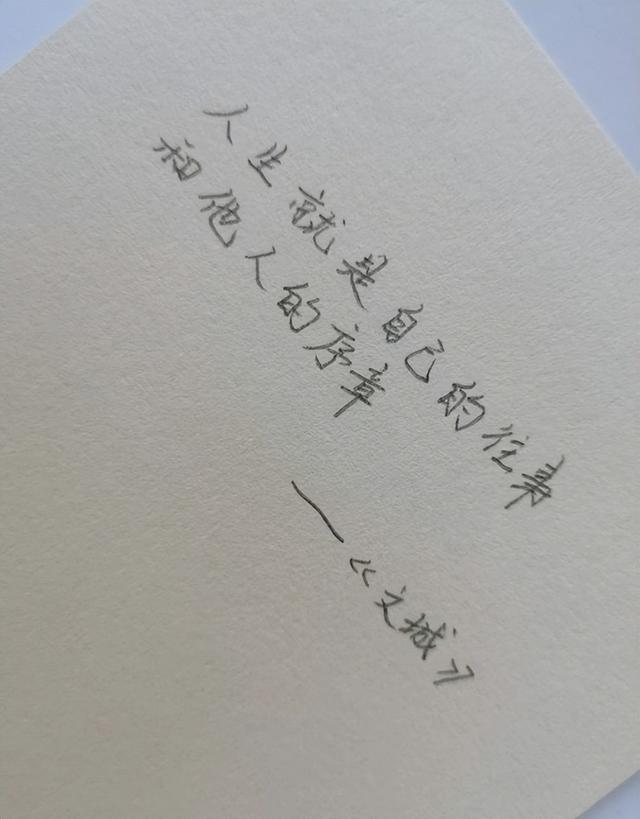 人生就是自己的往事
和他人的序章
——《文城》